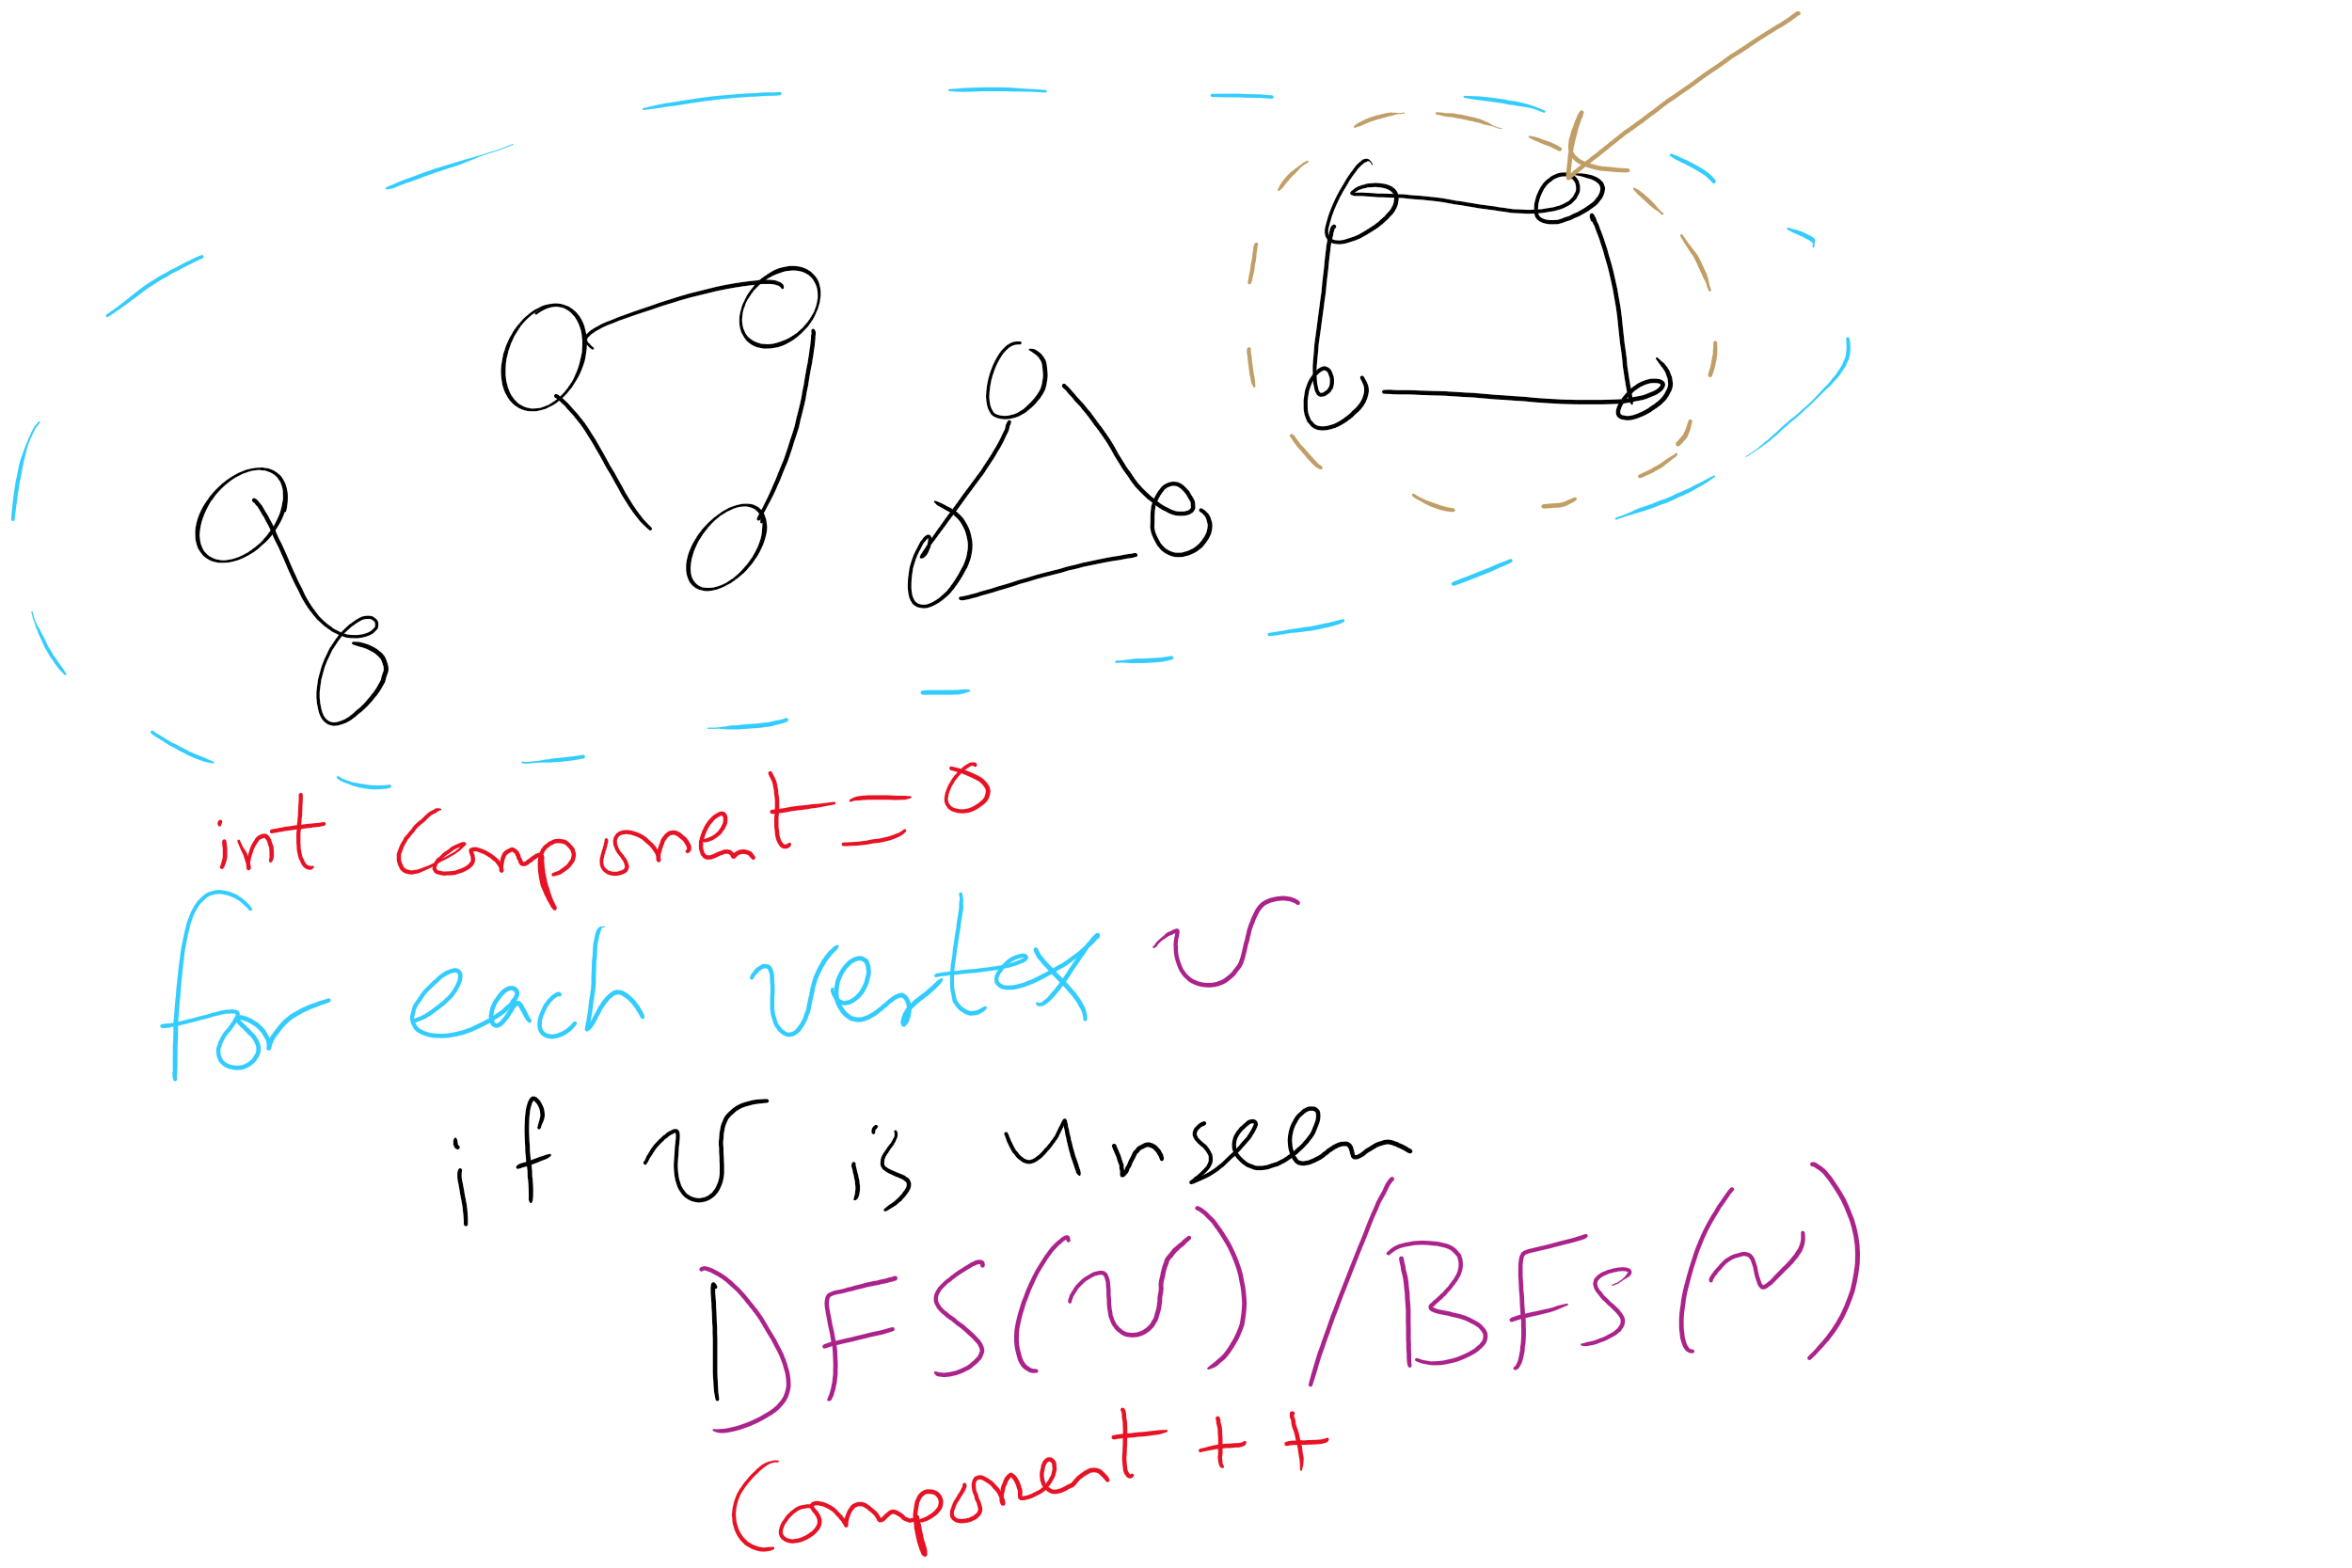 int component = 0
for each vertex v
if v is unseen
DFS(v) / BFS(v)
Component ++